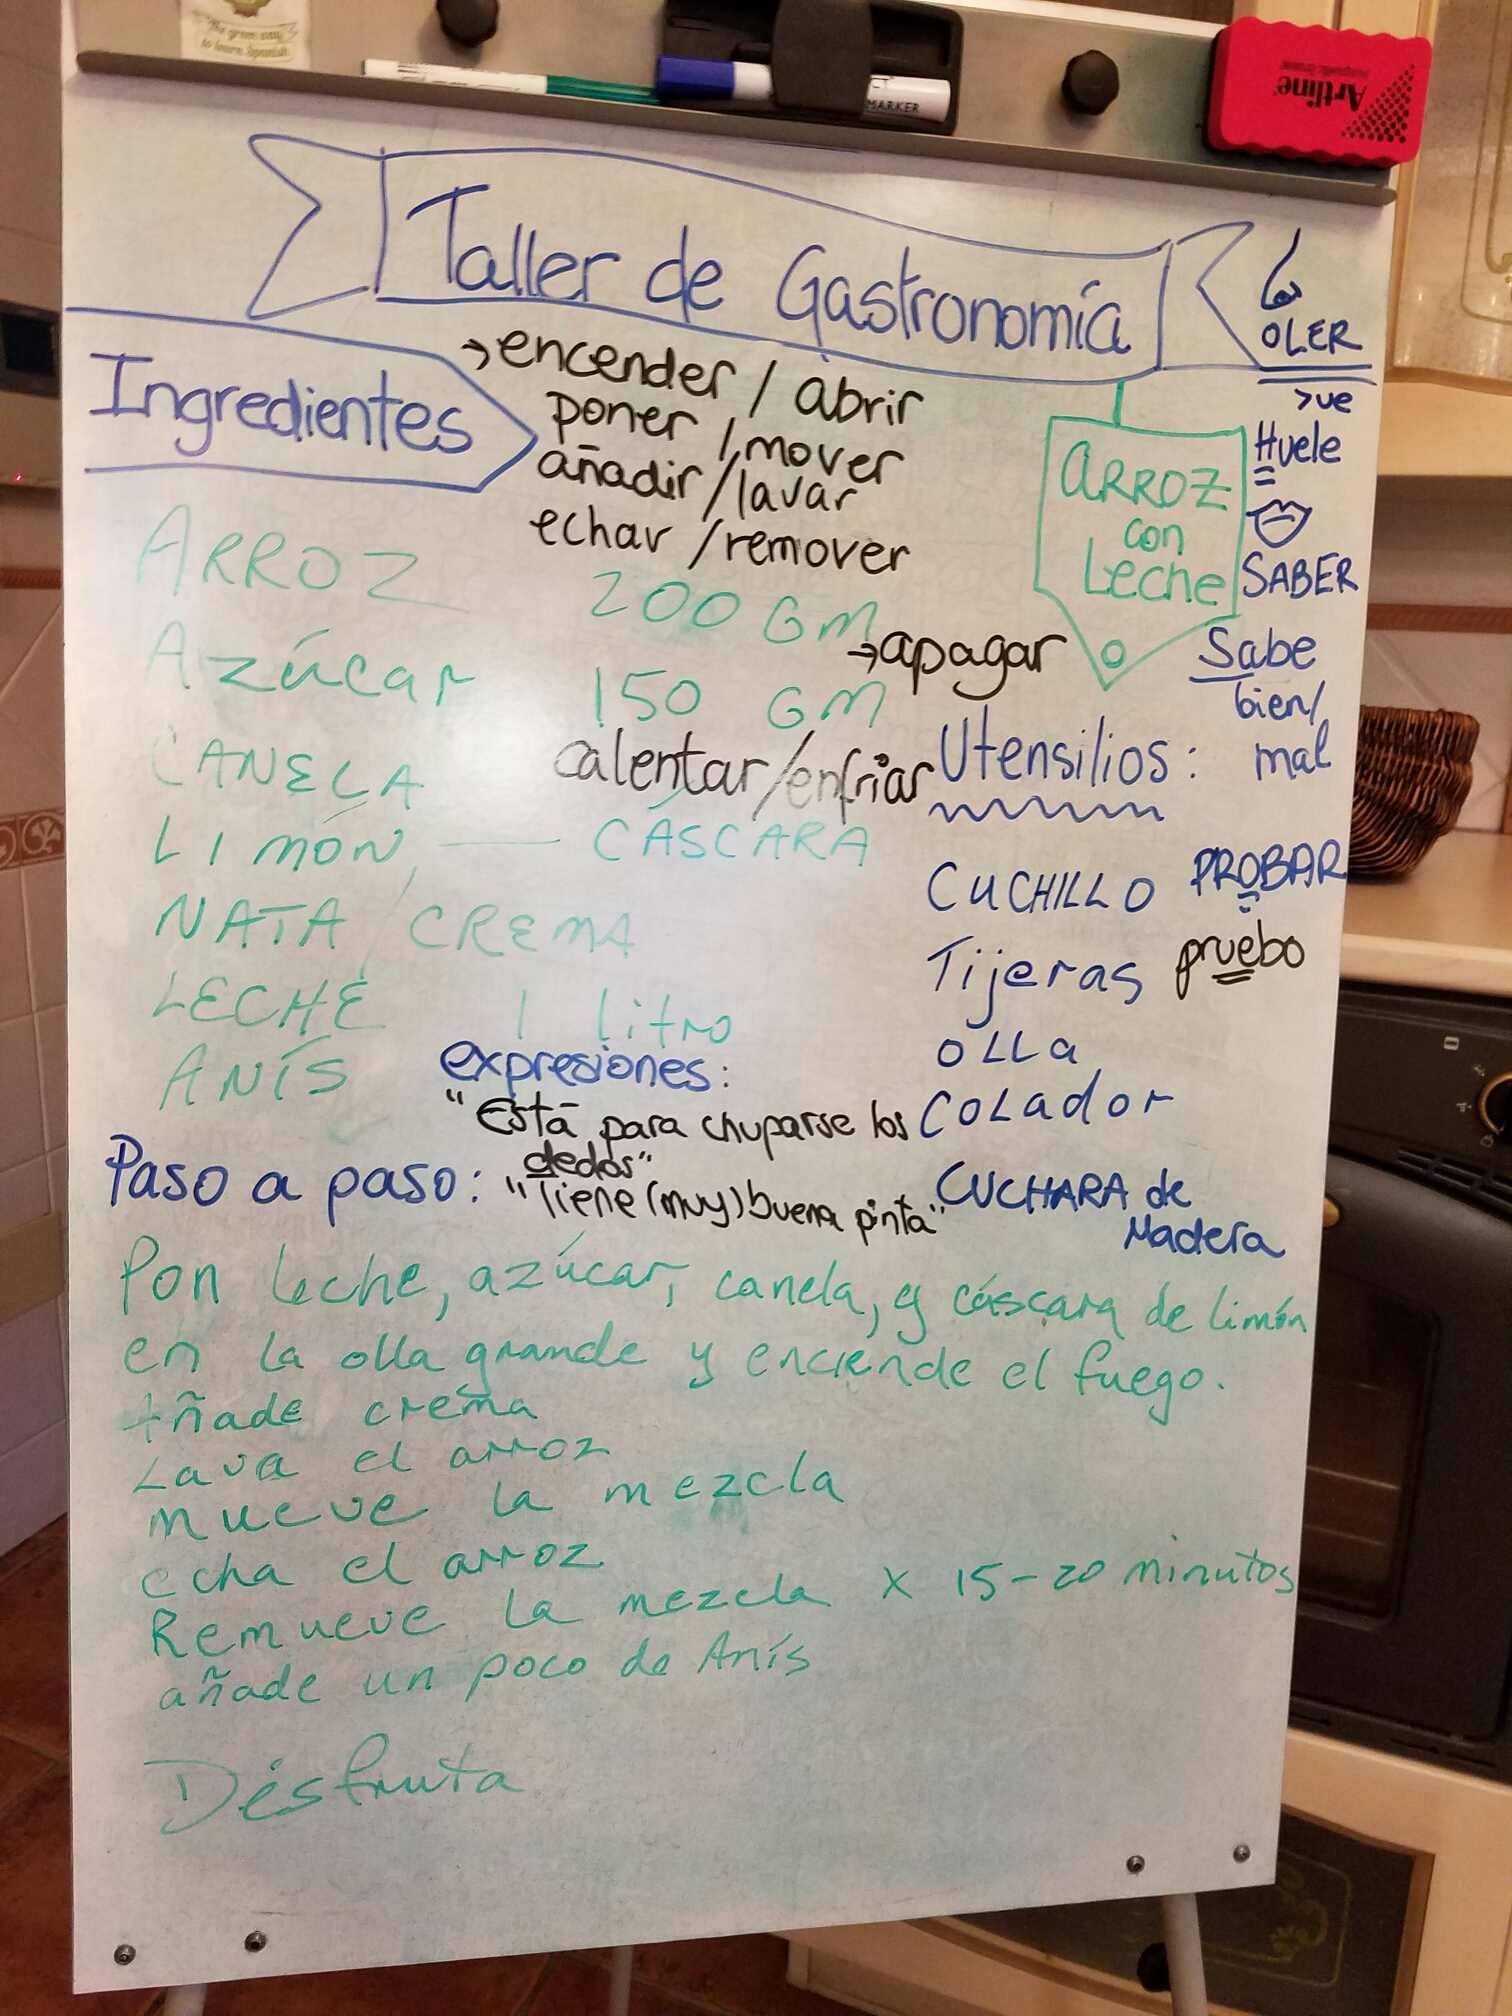 The green way
to learn Spanish
MARKER
Artline
Taller de Gastronomía
OLER
>ue
Huele
SABER
Sabe
bien/
mal
PROBAR
pruebo
Ingredientes
→encender / abrir
poner / mover
añadir / lavar
echar / remover
ARROZ
con
Leche
ARROZ 200 GM
→apagar
Azúcar 150 GM
CANELA
calentar/enfriar
LIMÓN — CÁSCARA
NATA / CREMA
LECHE 1 litro
ANÍS
Utensilios:
CUCHILLO
Tijeras
OLLA
COLador
CUCHARA de
Madera
expresiones:
"Está para chuparse los
dedos"
"Tiene (muy) buena pinta"
Paso a paso:
Pon leche, azúcar, canela, y cáscara de limón
en la olla grande y enciende el fuego.
Añade crema
Lava el arroz
mueve la mezcla
echa el arroz
Remueve la mezcla x 15-20 minutos
añade un poco de Anís
Desfruta